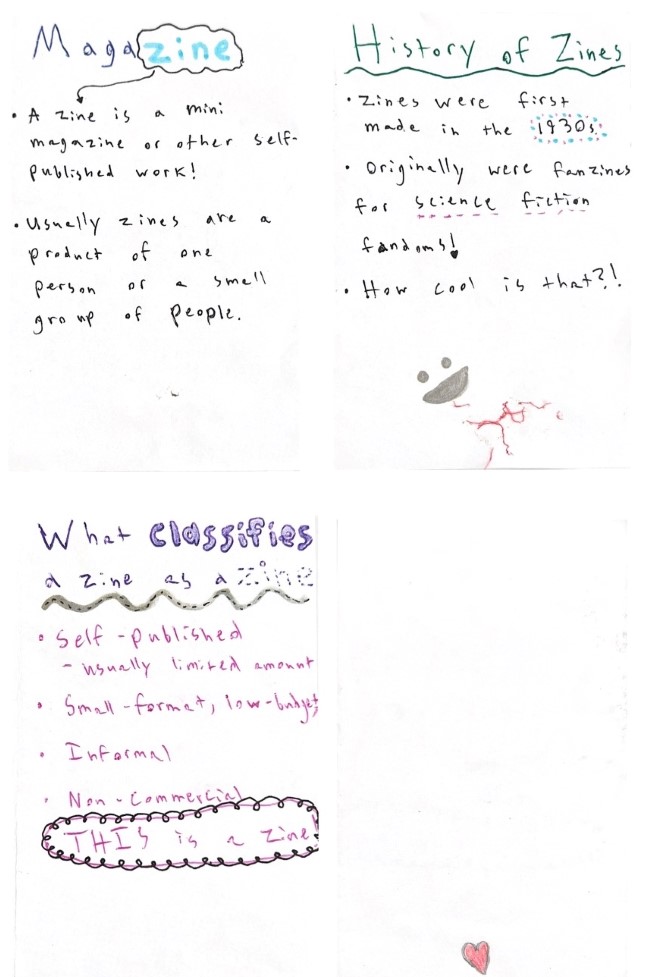 Magazine
• A zine is a mini
magazine or other self-
published work!
• Usually zines are a
product of one
person or a small
group of people.
History of Zines
• Zines were first
made in the 1930s.
• Originally were fanzines
for science fiction
fandoms!
• How cool is that?!
What classifies
a zine as a zine
• Self-published
- usually limited amount
• Small-format, low-budget,
• Informal
• Non-commercial
THIS is a zine!